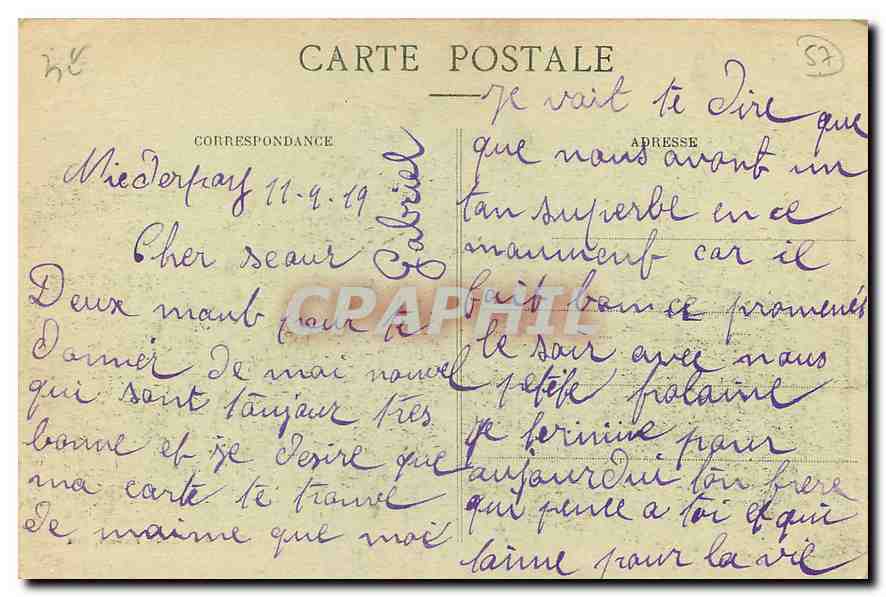 CARTE POSTALE
57
CORRESPONDANCE
11-9-19
Cher seaur
Deux maub pour te
donner de moi nouvel
qui sont toujour tres
bonne et je desire que
ma carte te trouve
de maime que moi
Gabriel
ADRESSE
je vait te dire que
que nous avont un
tan superbe en ce
maument car il
fait bon ce promenés
le soir avec nous
petite frolaine
je termine pour
aujourdui ton frere
qui pence a toi et qui
taime pour la vie
CPAPHIL